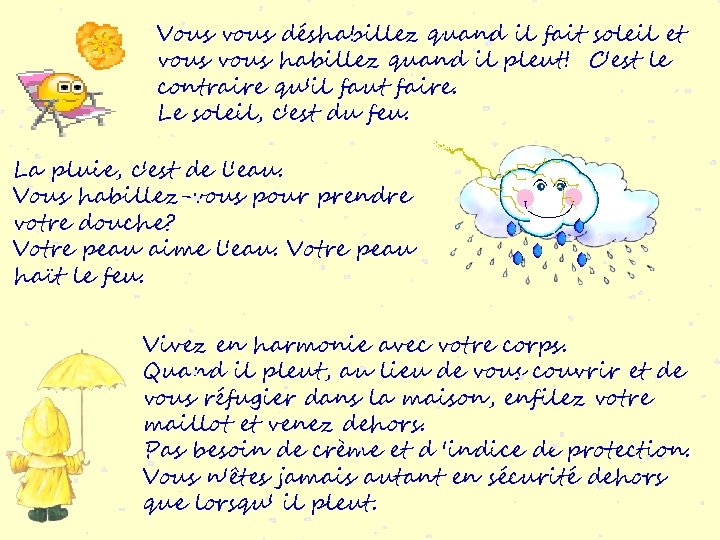 Vous vous déshabillez quand il fait soleil et
vous vous habillez quand il pleut! C'est le
contraire qu'il faut faire.
Le soleil, c'est du feu.
La pluie, c'est de l'eau.
Vous habillez-vous pour prendre
votre douche?
Votre peau aime l'eau. Votre peau
haït le feu.
Vivez en harmonie avec votre corps.
Quand il pleut, au lieu de vous couvrir et de
vous réfugier dans la maison, enfilez votre
maillot et venez dehors.
Pas besoin de crème et d 'indice de protection.
Vous n'êtes jamais autant en sécurité dehors
que lorsqu' il pleut.